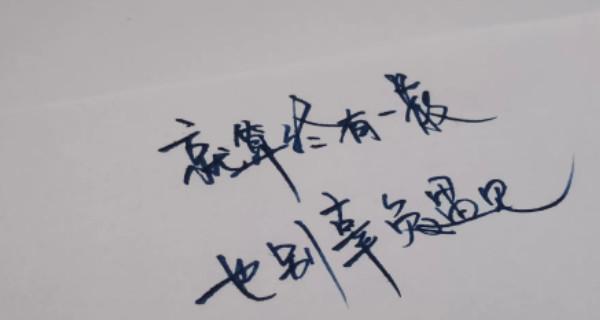 就算终有一散
也别辜负遇见